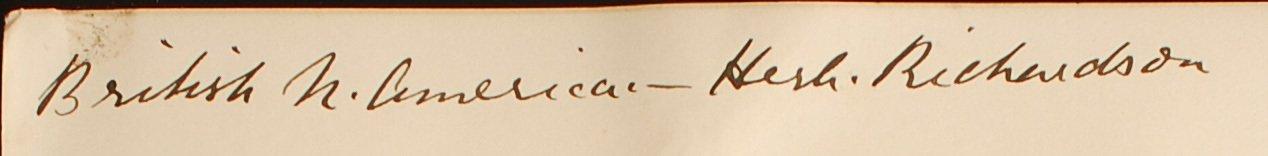 British N. America. — Herb. Richardson